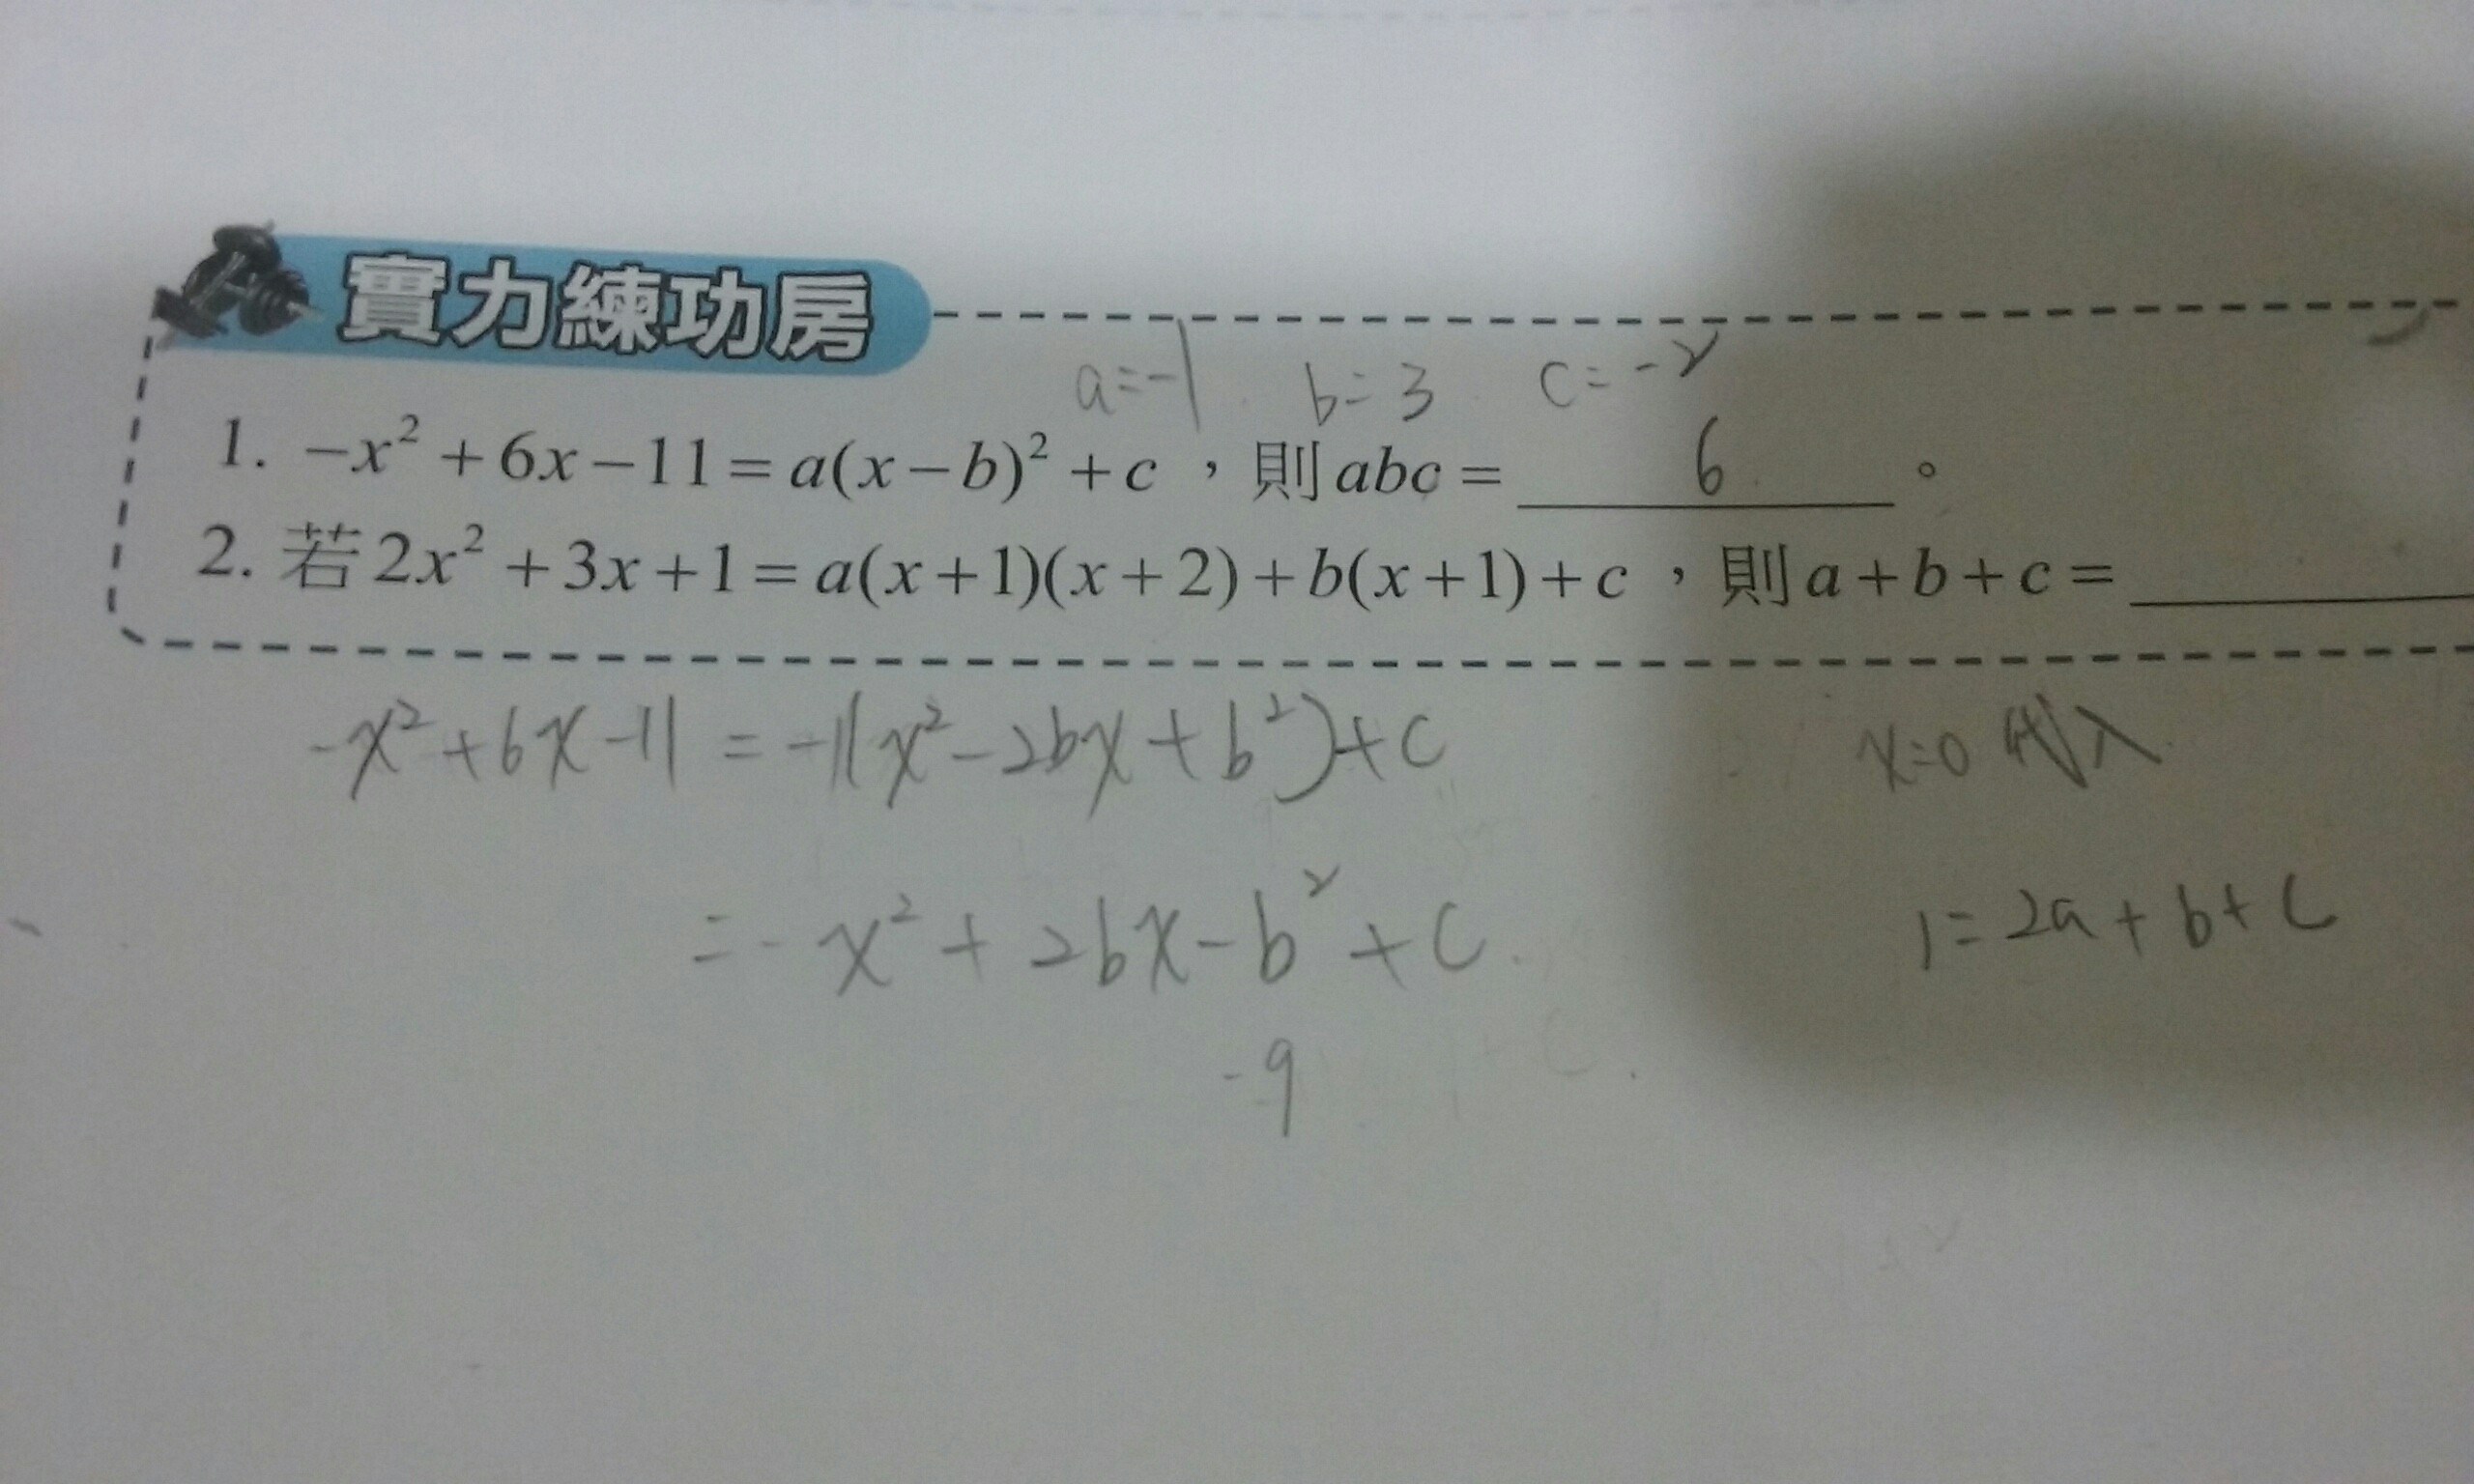 實力練功房
a=-1 b=3 c=-2
1. −x² + 6x − 11 = a(x − b)² + c ，則 abc = 6 。
2. 若 2x² + 3x + 1 = a(x + 1)(x + 2) + b(x + 1) + c ，則 a + b + c =
-x²+6x-11 = -1(x²-2bx+b²)+c
x=0 代入
= -x²+2bx-b²+c
1=2a+b+c
-9